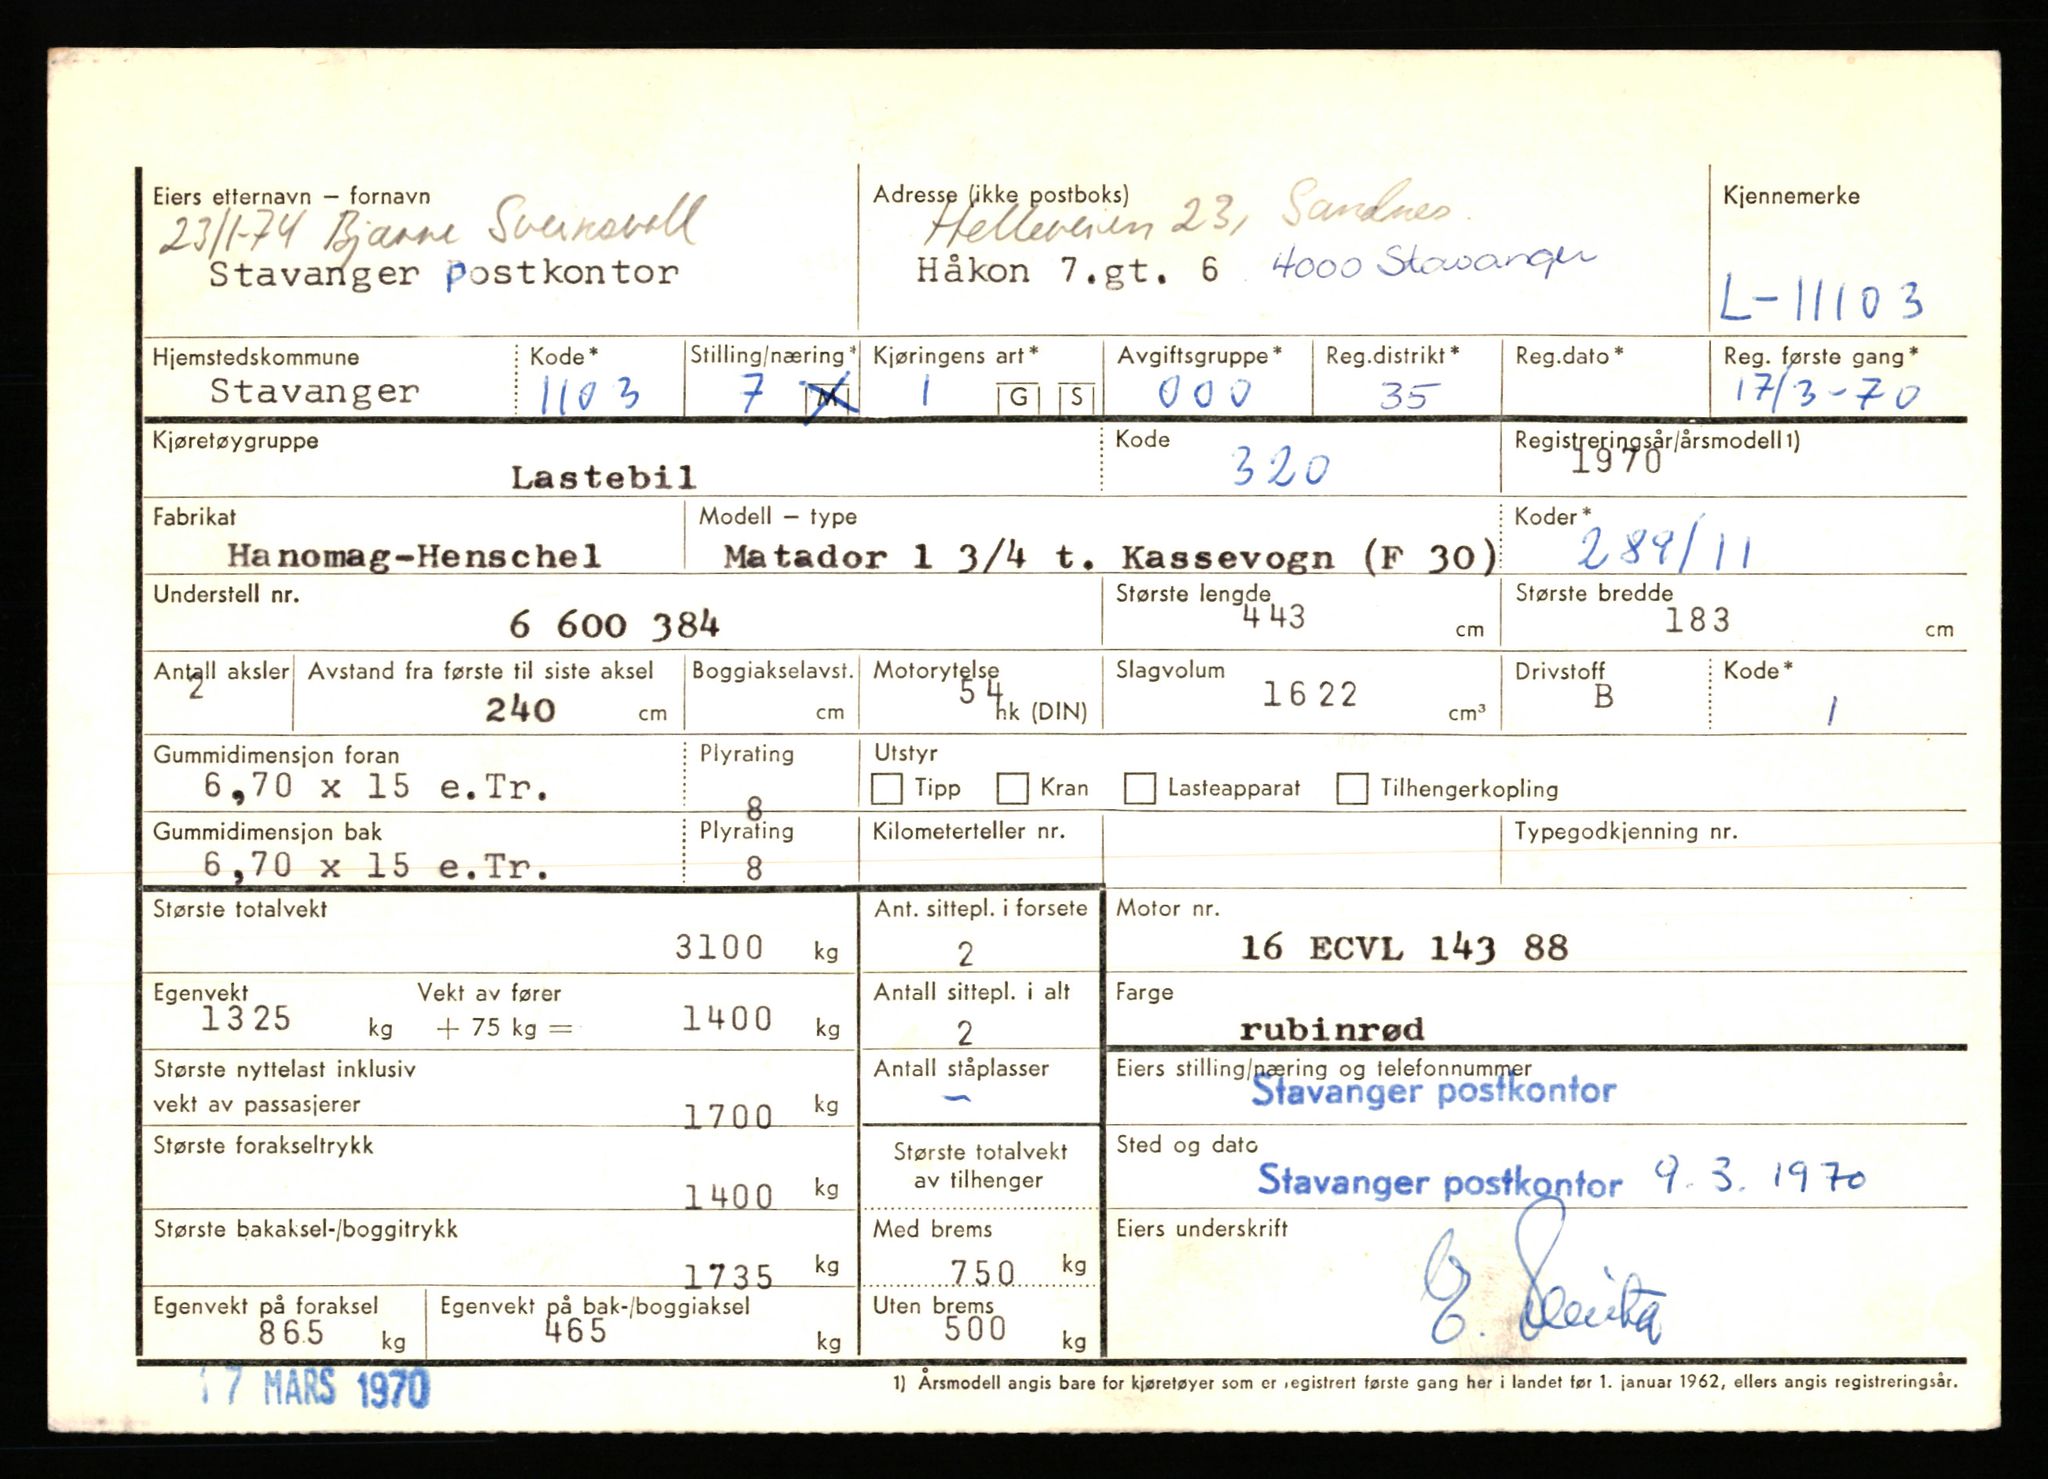 Eiers etternavn – fornavn
23/1-74 Bjarne Sveinsvoll
Stavanger postkontor
Adresse (ikke postboks)
Helleveien 23, Sandnes.
Håkon 7.gt. 6 4000 Stavanger
Kjennemerke
L-11103
Hjemstedskommune
Stavanger
Kode*
1103
Stilling/næring*
7 M
Kjøringens art*
1 G S
Avgiftsgruppe*
000
Reg.distrikt*
35
Reg.dato*
Reg. første gang*
17/3-70
Kjøretøygruppe
Lastebil
Kode
320
Registreringsår/årsmodell 1)
1970
Fabrikat
Hanomag-Henschel
Modell – type
Matador 1 3/4 t. Kassevogn (F 30)
Koder*
289/11
Understell nr.
6 600 384
Største lengde
443 cm
Største bredde
183 cm
Antall aksler
2
Avstand fra første til siste aksel
240 cm
Boggiakselavst.
cm
Motorytelse
54 hk (DIN)
Slagvolum
1622 cm³
Drivstoff
B
Kode*
1
Gummidimensjon foran
6,70 x 15 e.Tr.
Plyrating
8
Utstyr
Tipp Kran Lasteapparat Tilhengerkopling
Gummidimensjon bak
6,70 x 15 e.Tr.
Plyrating
8
Kilometerteller nr.
Typegodkjenning nr.
Største totalvekt
3100 kg
Ant. sittepl. i forsete
2
Motor nr.
16 ECVL 143 88
Egenvekt
1325 kg
Vekt av fører
+ 75 kg = 1400 kg
Antall sittepl. i alt
2
Farge
rubinrød
Største nyttelast inklusiv
vekt av passasjerer
1700 kg
Antall ståplasser
–
Eiers stilling/næring og telefonnummer
Stavanger postkontor
Største forakseltrykk
1400 kg
Største totalvekt
av tilhenger
Sted og dato
Stavanger postkontor 9.3.1970
Største bakaksel-/boggitrykk
1735 kg
Med brems
750 kg
Eiers underskrift
Egenvekt på foraksel
865 kg
Egenvekt på bak-/boggiaksel
465 kg
Uten brems
500 kg
17 MARS 1970
1) Årsmodell angis bare for kjøretøyer som er registrert første gang her i landet før 1. januar 1962, ellers angis registreringsår.